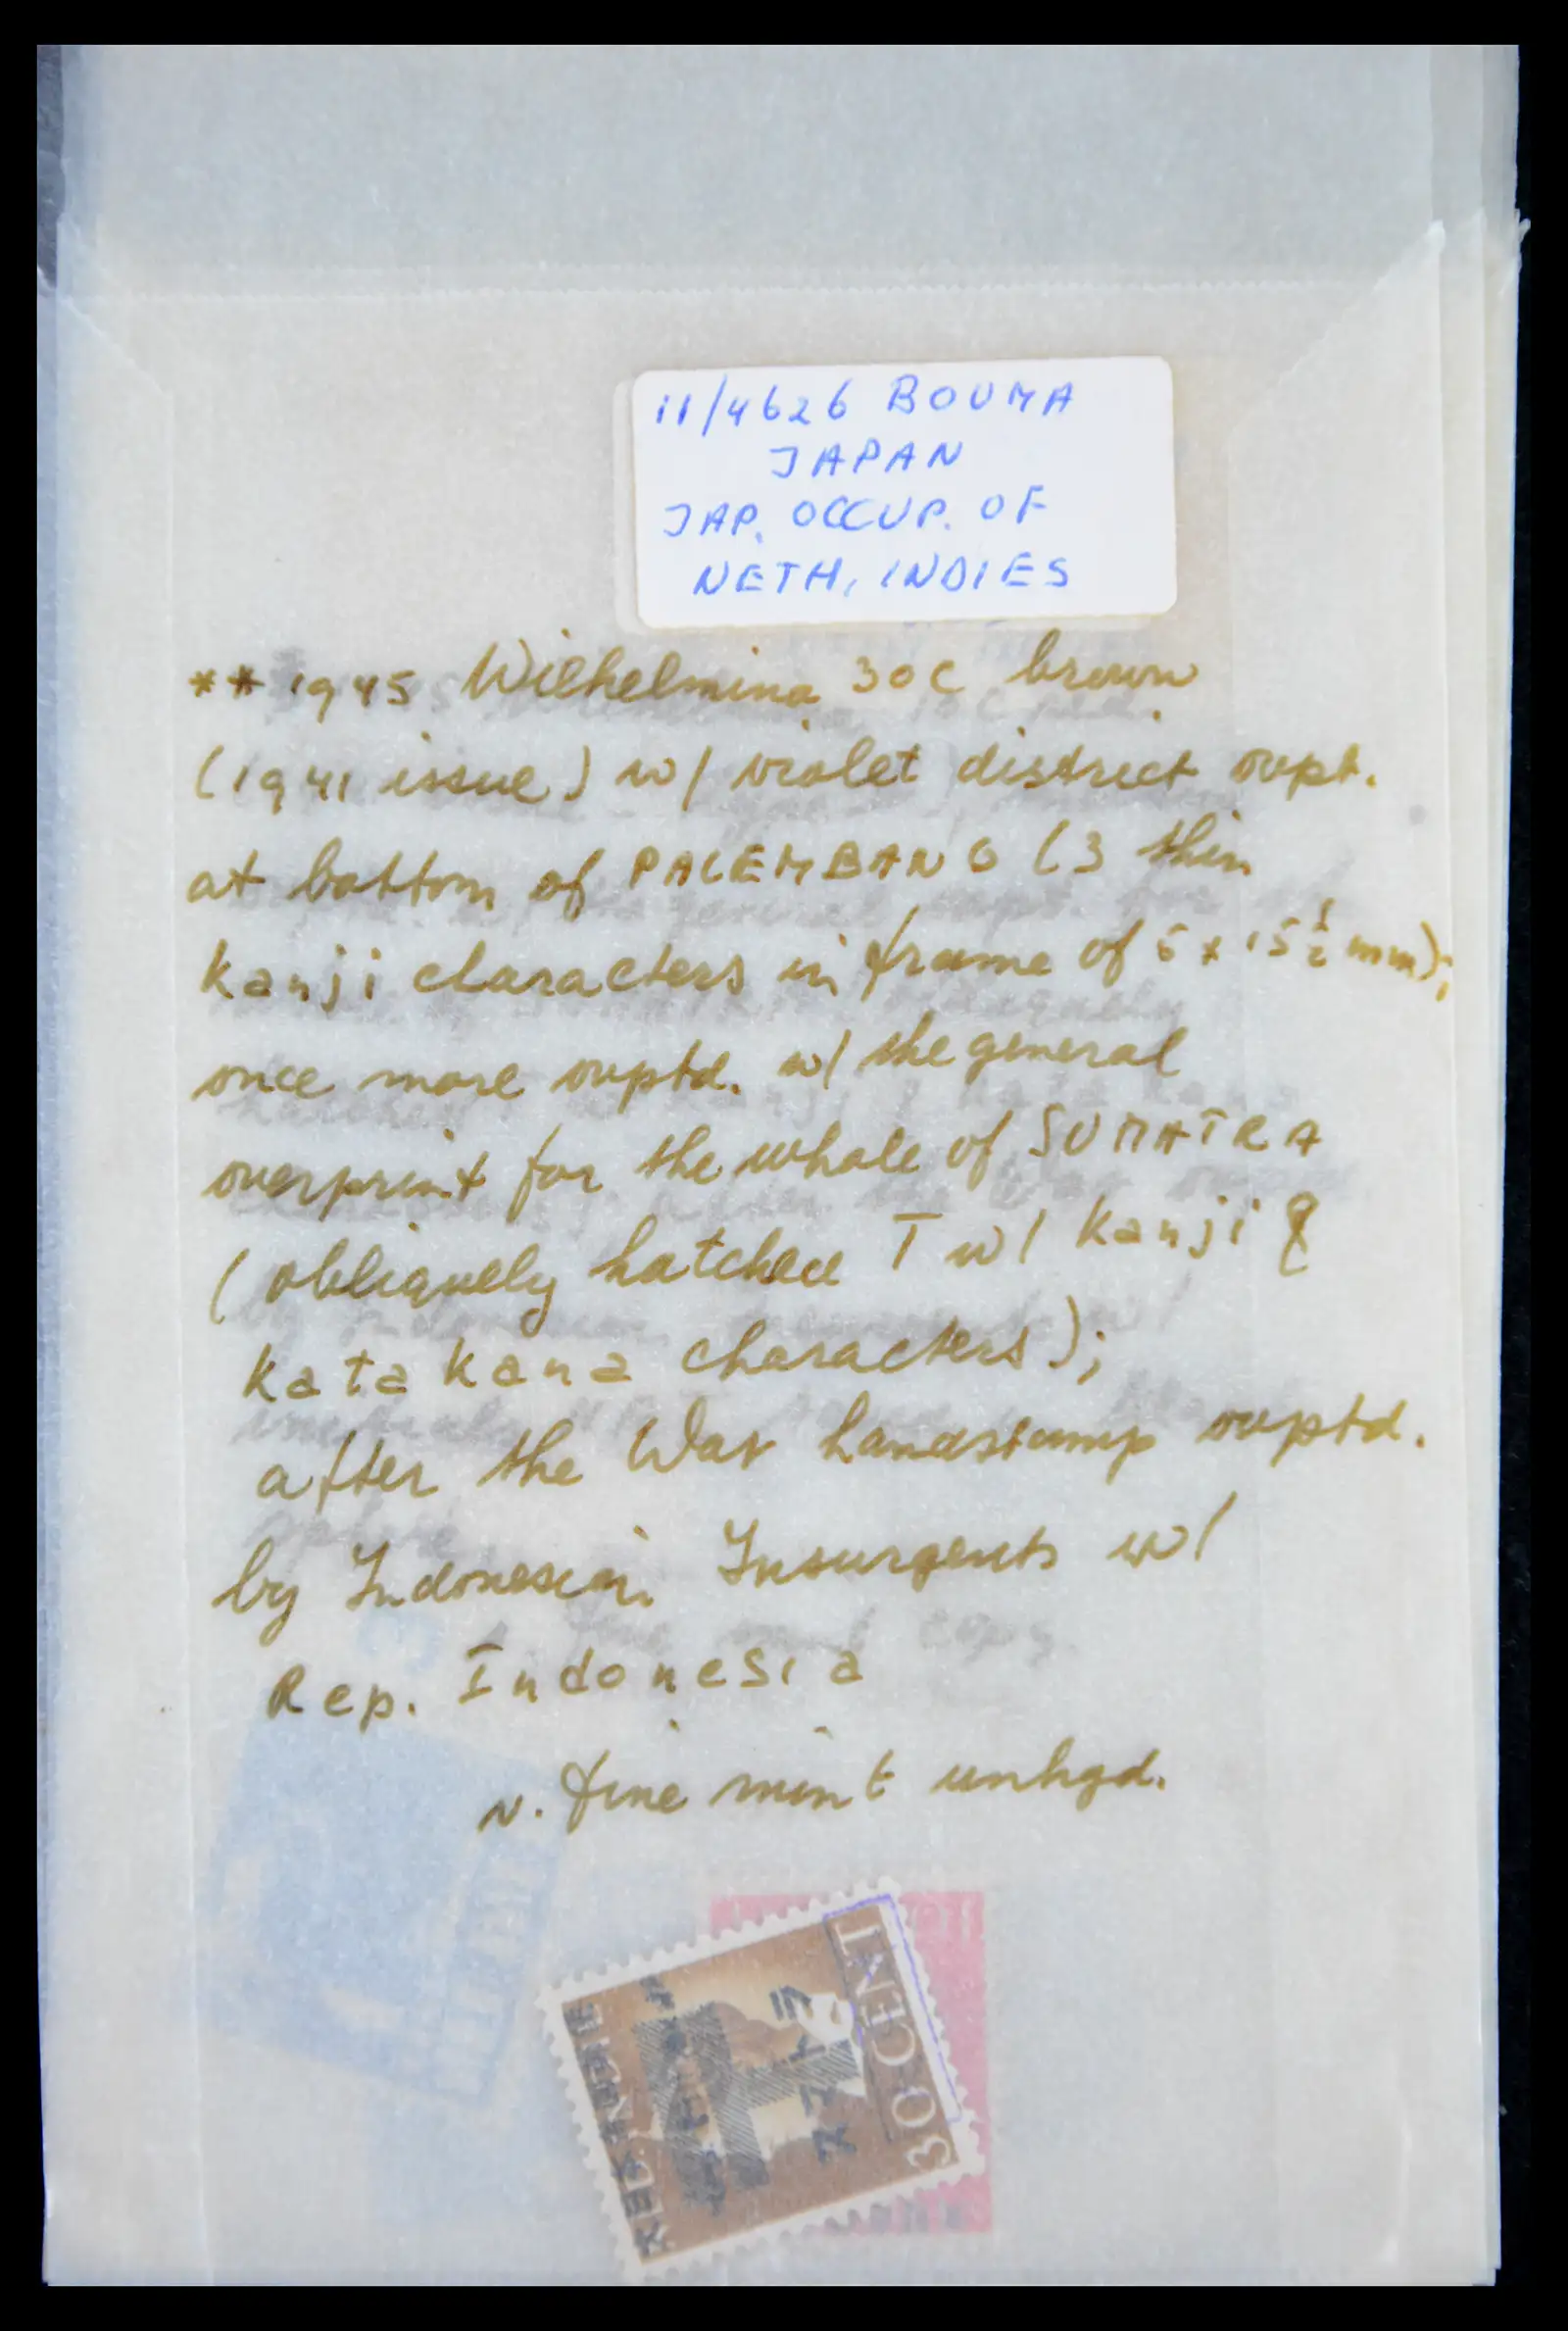 11/4626 BOUMA
JAPAN
JAP. OCCUP. OF
NETH. INDIES
** 1945 Wilhelmina 30c brown
(1941 issue) w/ violet district ovpt.
at bottom of PALEMBANG (3 thin
kanji characters in frame of 5 x 15½ mm);
once more ovptd. w/ the general
overprint for the whole of SUMATRA
(obliquely hatched T w/ kanji &
katakana characters);
after the War handstamp ovptd.
by Indonesian Insurgents w/
Rep. Indonesia
v. fine mint unhgd.
NED. INDIE
30 CENT